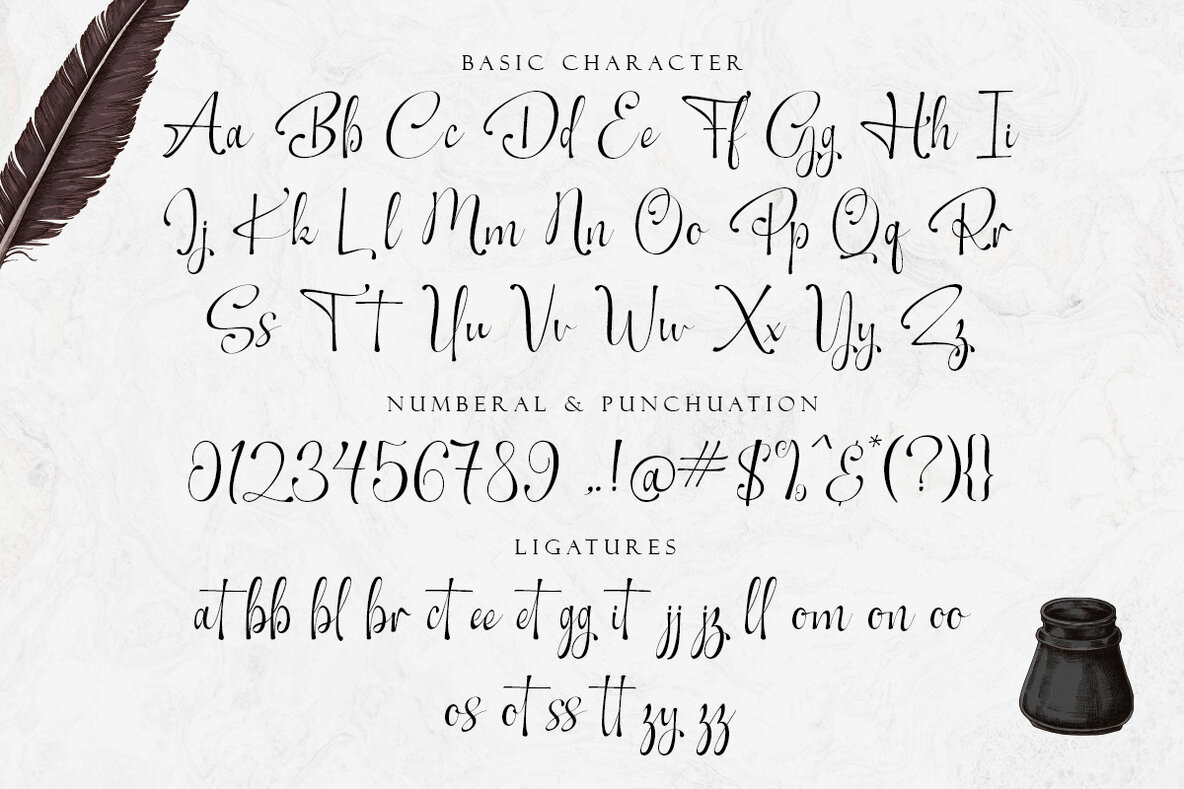 BASIC CHARACTER
Aa Bb Cc Dd Ee Ff Gg Hh Ii
Jj Kk Ll Mm Nn Oo Pp Qq Rr
Ss Tt Uu Vv Ww Xx Yy Zz
NUMBERAL & PUNCHUATION
0123456789 ,.!@#$%^&*(?){}
LIGATURES
at bb bl br ct ee et gg it jj jz ll om on oo
os ot ss tt zy zz